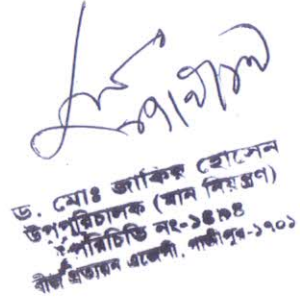 ড. মোঃ জাকির হোসেন
উপপরিচালক (মান নিয়ন্ত্রণ)
পরিচিতি নং-
বীজ প্রত্যয়ন এজেন্সী, গাজীপুর-১৭০১